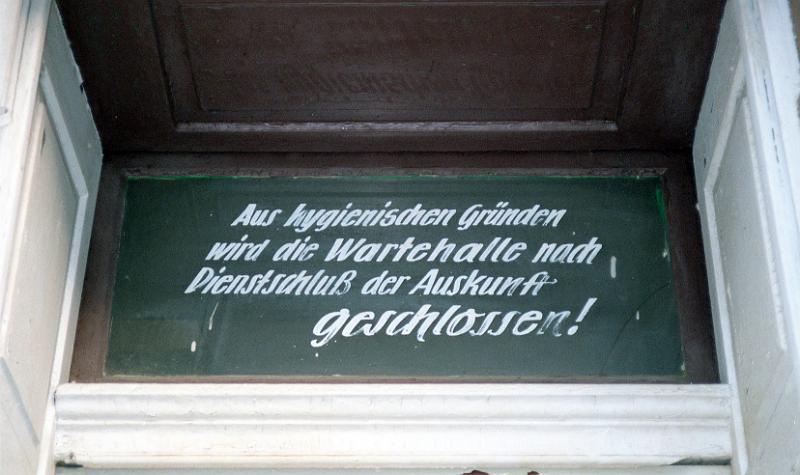 Aus hygienischen Gründen
wird die Wartehalle nach
Dienstschluß der Auskunft
geschlossen!